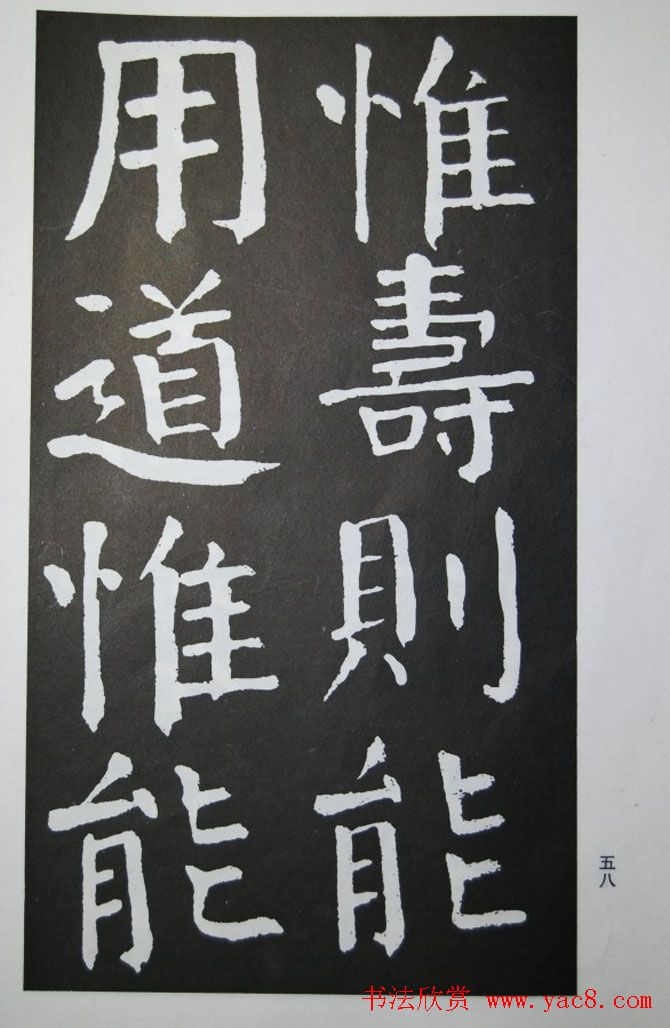 惟壽則能
用道惟能
五八
书法欣赏 www.yac8.com